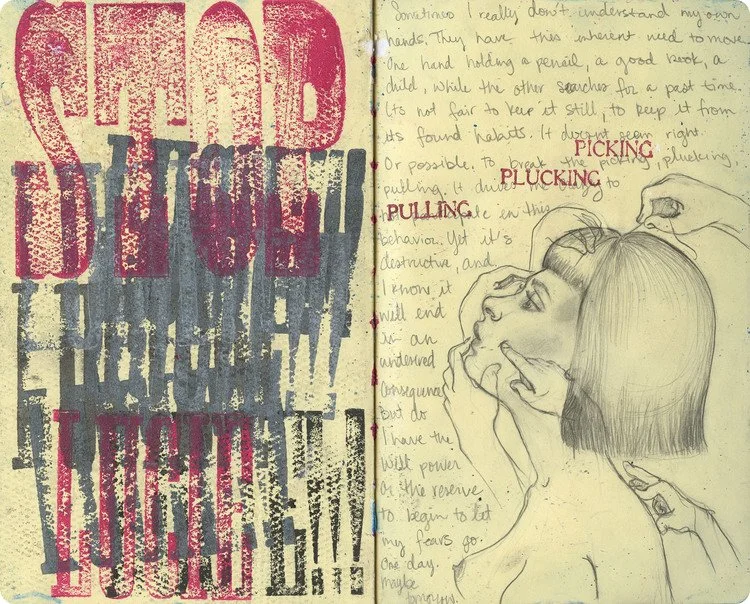 STOP
LUCIE!!!
Sometimes I really don't understand my own
hands. They have this inherent need to move
One hand holding a pencil, a good book, a
child, while the other searches for a past time.
Its not fair to keep it still, to keep it from
its found habits. It doesnt seem right.
Or possible. To break the picking, plucking,
PICKING
pulling. It drives me crazy to
PLUCKING
PULLING
in this
behavior. Yet it's
destructive, and
I know it
will end
in an
undesired
consequence
But do
I have the
will power
or the reserve
to begin to let
my fears go.
One day.
maybe
tomorrow.